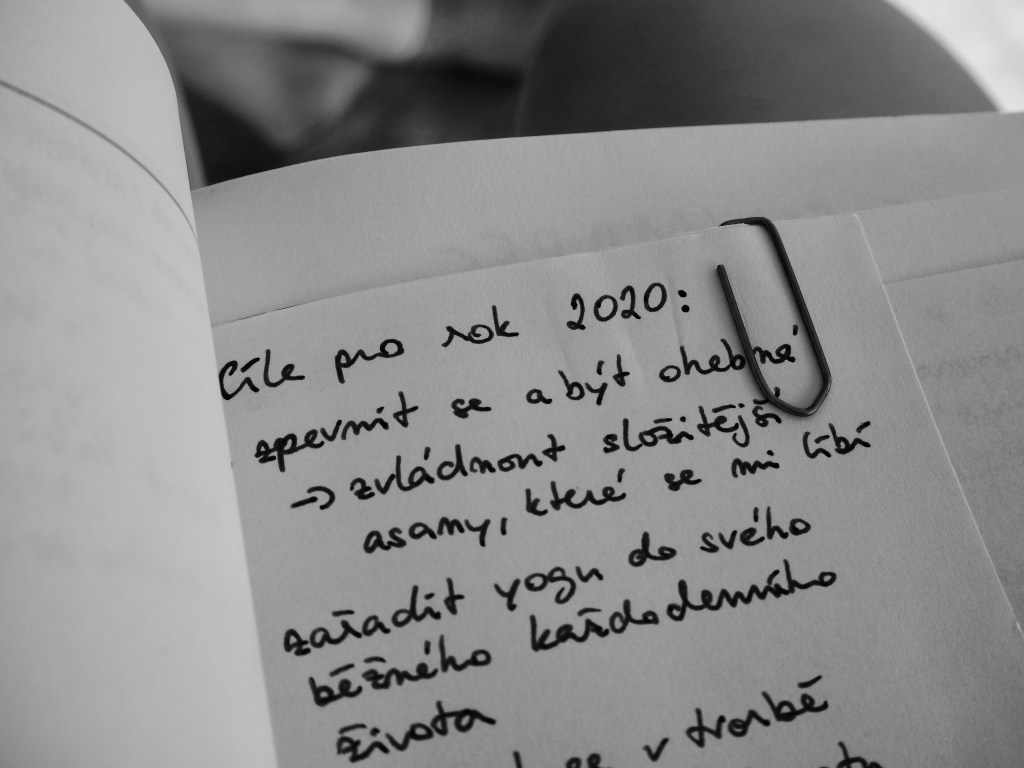 Cíle pro rok 2020:
zpevnit se a být ohebná
→ zvládnout složitější
asany, které se mi líbí
zařadit yogu do svého
běžného každodenního
života
se v tvorbě